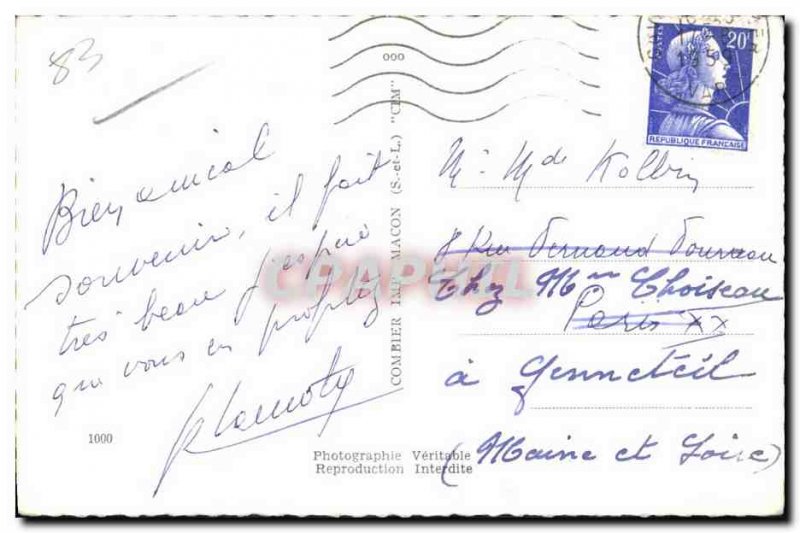 83
Bien amical
souvenir, il fait
très beau j'espère
que vous en profitez
1000
COMBIER IMP. MACON (S.-et-L.) "CIM"
ooo
Photographie Véritable
Reproduction Interdite
20F
POSTES
REPUBLIQUE FRANÇAISE
VAR
Mr Mde Kolbin
8 Rue Fernand Fourreau
Chez Mme Choiseau
Paris XX
à Genneteil
(Maine et Loire)
CPAPHIL